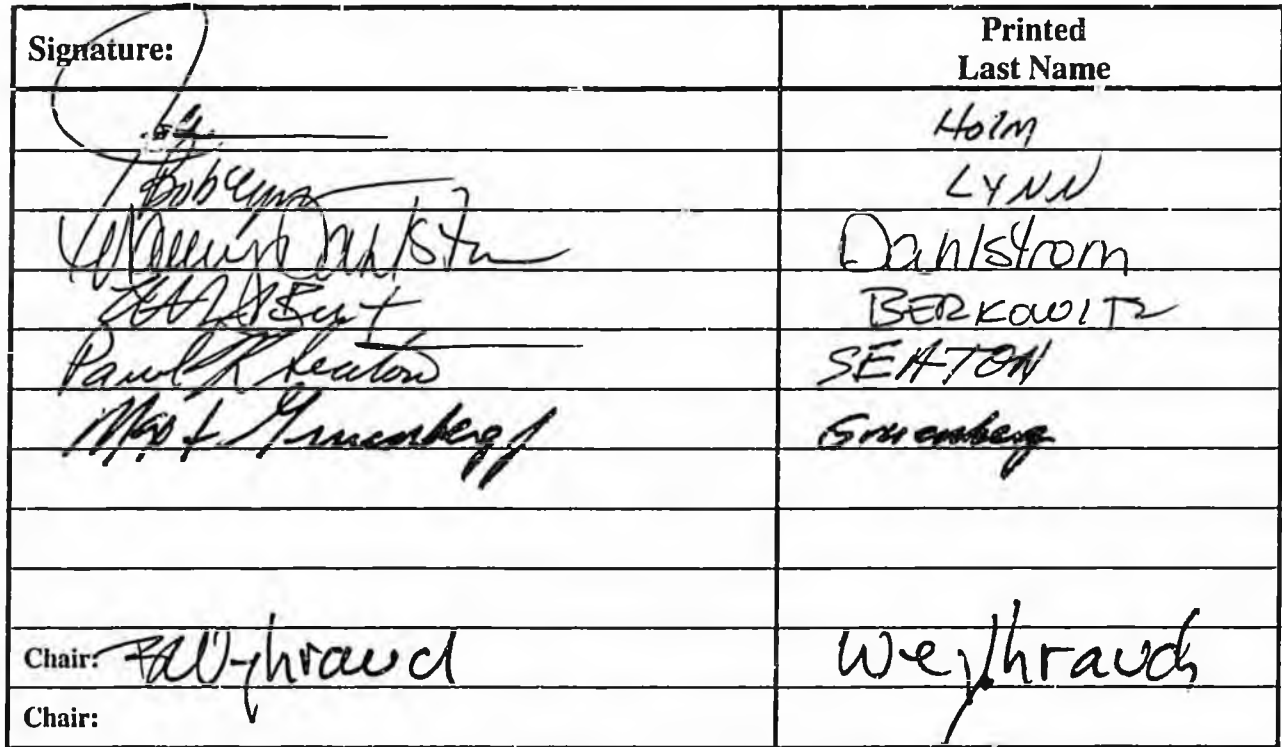 Signature: Printed
Last Name
Holm
Bob Lynn LYNN
Dahlstrom
BERKOWITZ
Paul K Seaton SEATON
Max F. Gruenberg Jr Gruenberg
Chair: BWeyhrauch Weyhrauch
Chair: